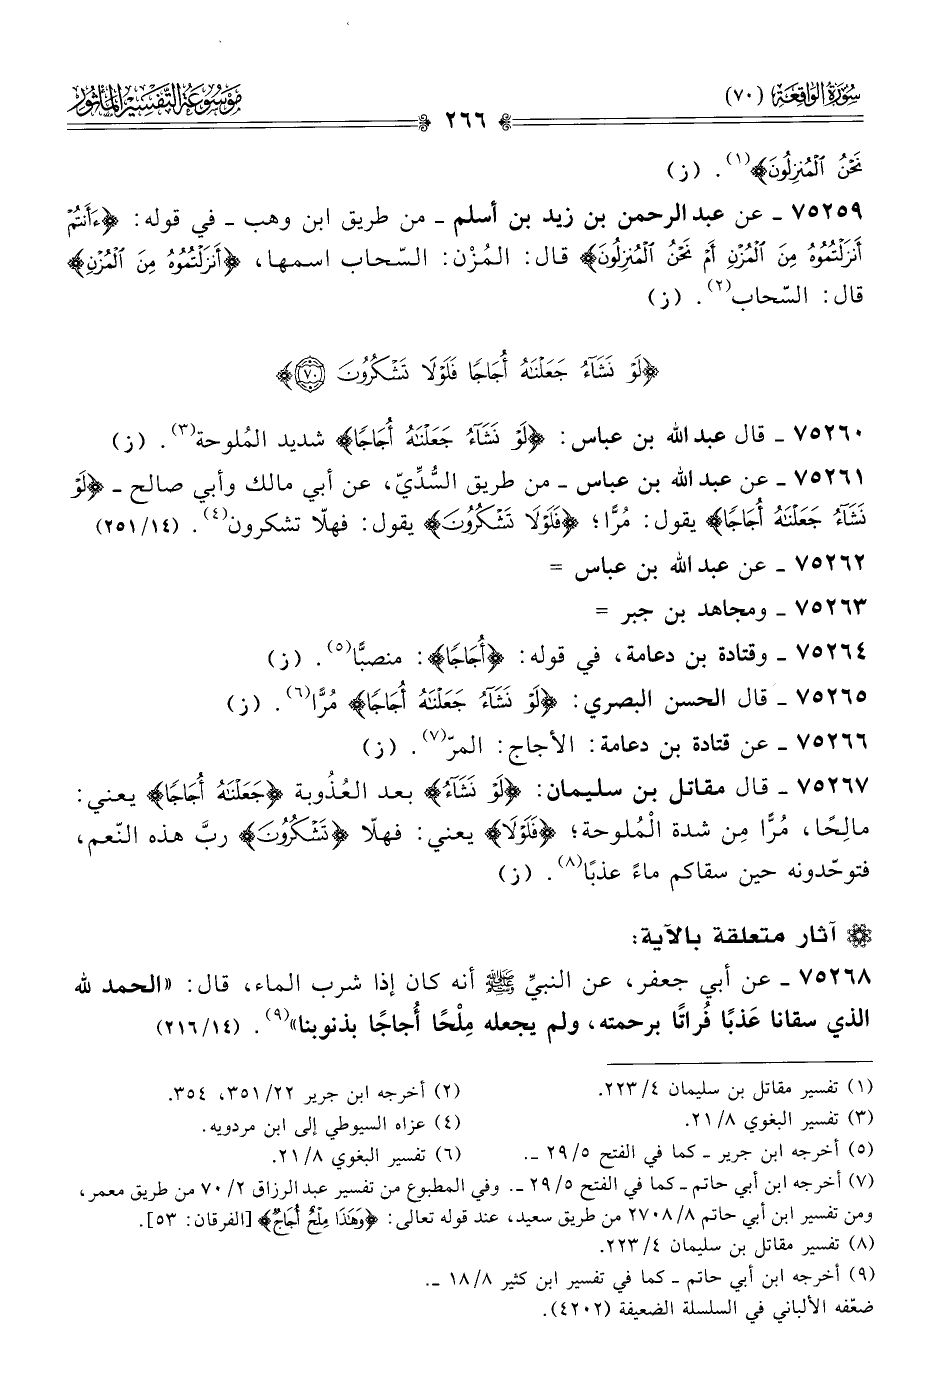 سورة الواقعة (٧٠)
٢٦٦
موسوعة التفسير المأثور
نَحْنُ ٱلْمُنزِلُونَ﴾(١). (ز)
٧٥٢٥٩ ـ عن عبد الرحمن بن زيد بن أسلم ـ من طريق ابن وهب ـ في قوله: ﴿ءَأَنتُمْ
أَنزَلْتُمُوهُ مِنَ ٱلْمُزْنِ أَمْ نَحْنُ ٱلْمُنزِلُونَ﴾ قال: المُزْن: السّحاب اسمها، ﴿أَنزَلْتُمُوهُ مِنَ ٱلْمُزْنِ﴾
قال: السّحاب(٢). (ز)
﴿لَوْ نَشَآءُ جَعَلْنَٰهُ أُجَاجًا فَلَوْلَا تَشْكُرُونَ ٧٠﴾
٧٥٢٦٠ ـ قال عبد الله بن عباس: ﴿لَوْ نَشَآءُ جَعَلْنَٰهُ أُجَاجًا﴾ شديد المُلوحة(٣). (ز)
٧٥٢٦١ ـ عن عبد الله بن عباس ـ من طريق السُّدِّيّ، عن أبي مالك وأبي صالح ـ ﴿لَوْ
نَشَآءُ جَعَلْنَٰهُ أُجَاجًا﴾ يقول: مُرًّا؛ ﴿فَلَوْلَا تَشْكُرُونَ﴾ يقول: فهلّا تشكرون(٤). (٢٥١/١٤)
٧٥٢٦٢ ـ عن عبد الله بن عباس =
٧٥٢٦٣ ـ ومجاهد بن جبر =
٧٥٢٦٤ ـ وقتادة بن دعامة، في قوله: ﴿أُجَاجًا﴾: منصبًّا(٥). (ز)
٧٥٢٦٥ ـ قال الحسن البصري: ﴿لَوْ نَشَآءُ جَعَلْنَٰهُ أُجَاجًا﴾ مُرًّا(٦). (ز)
٧٥٢٦٦ ـ عن قتادة بن دعامة: الأجاج: المرّ(٧). (ز)
٧٥٢٦٧ ـ قال مقاتل بن سليمان: ﴿لَوْ نَشَآءُ﴾ بعد العُذُوبة ﴿جَعَلْنَٰهُ أُجَاجًا﴾ يعني:
مالِحًا، مُرًّا مِن شدة الْمُلوحة؛ ﴿فَلَوْلَا﴾ يعني: فهلّا ﴿تَشْكُرُونَ﴾ ربَّ هذه النّعم،
فتوحّدونه حين سقاكم ماءً عذبًا(٨). (ز)
آثار متعلقة بالآية:
٧٥٢٦٨ ـ عن أبي جعفر، عن النبيِّ ﷺ أنه كان إذا شرب الماء، قال: «الحمد لله
الذي سقانا عَذبًا فُراتًا برحمته، ولم يجعله مِلْحًا أُجاجًا بذنوبنا»(٩). (٢١٦/١٤)
(١) تفسير مقاتل بن سليمان ٢٢٣/٤. (٢) أخرجه ابن جرير ٣٥١/٢٢، ٣٥٤.
(٣) تفسير البغوي ٢١/٨. (٤) عزاه السيوطي إلى ابن مردويه.
(٥) أخرجه ابن جرير ـ كما في الفتح ٢٩/٥ ـ. (٦) تفسير البغوي ٢١/٨.
(٧) أخرجه ابن أبي حاتم ـ كما في الفتح ٢٩/٥ ـ. وفي المطبوع من تفسير عبد الرزاق ٧٠/٢ من طريق معمر،
ومن تفسير ابن أبي حاتم ٢٧٠٨/٨ من طريق سعيد، عند قوله تعالى: ﴿وَهَٰذَا مِلْحٌ أُجَاجٌ﴾ [الفرقان: ٥٣].
(٨) تفسير مقاتل بن سليمان ٢٢٣/٤.
(٩) أخرجه ابن أبي حاتم ـ كما في تفسير ابن كثير ١٨/٨ ـ.
ضعّفه الألباني في السلسلة الضعيفة (٤٢٠٢).